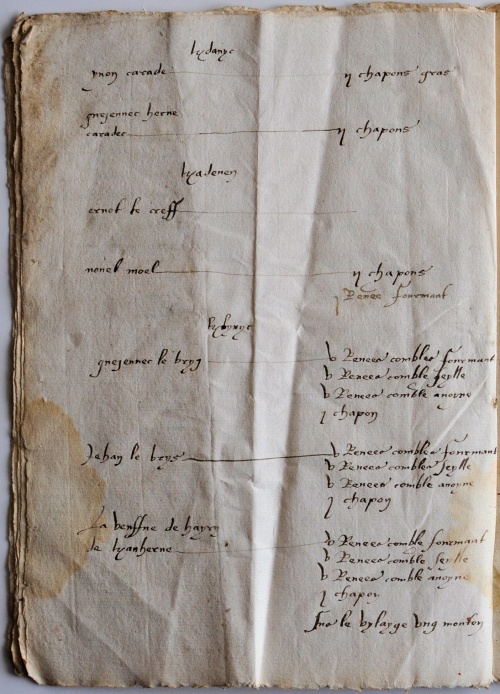 ynon carade ij chapons gras
guejennec herne
caradec ij chapons
ernot le creff
nouel moel ij chapons
j Renee fourmant
guejennec le bryz v Renees combles fourmant
v Renees comble seylle
v Renees comble avoyne
j chapon
Jehan le brys v Renees combles fourmant
v Renees combles seylle
v Renees comble avoyne
j chapon
La veuffve de hayry
de v Renees comble fourmant
v Renees comble seylle
v Renees comble avoyne
j chapon
Sur le vylayge ung mouton